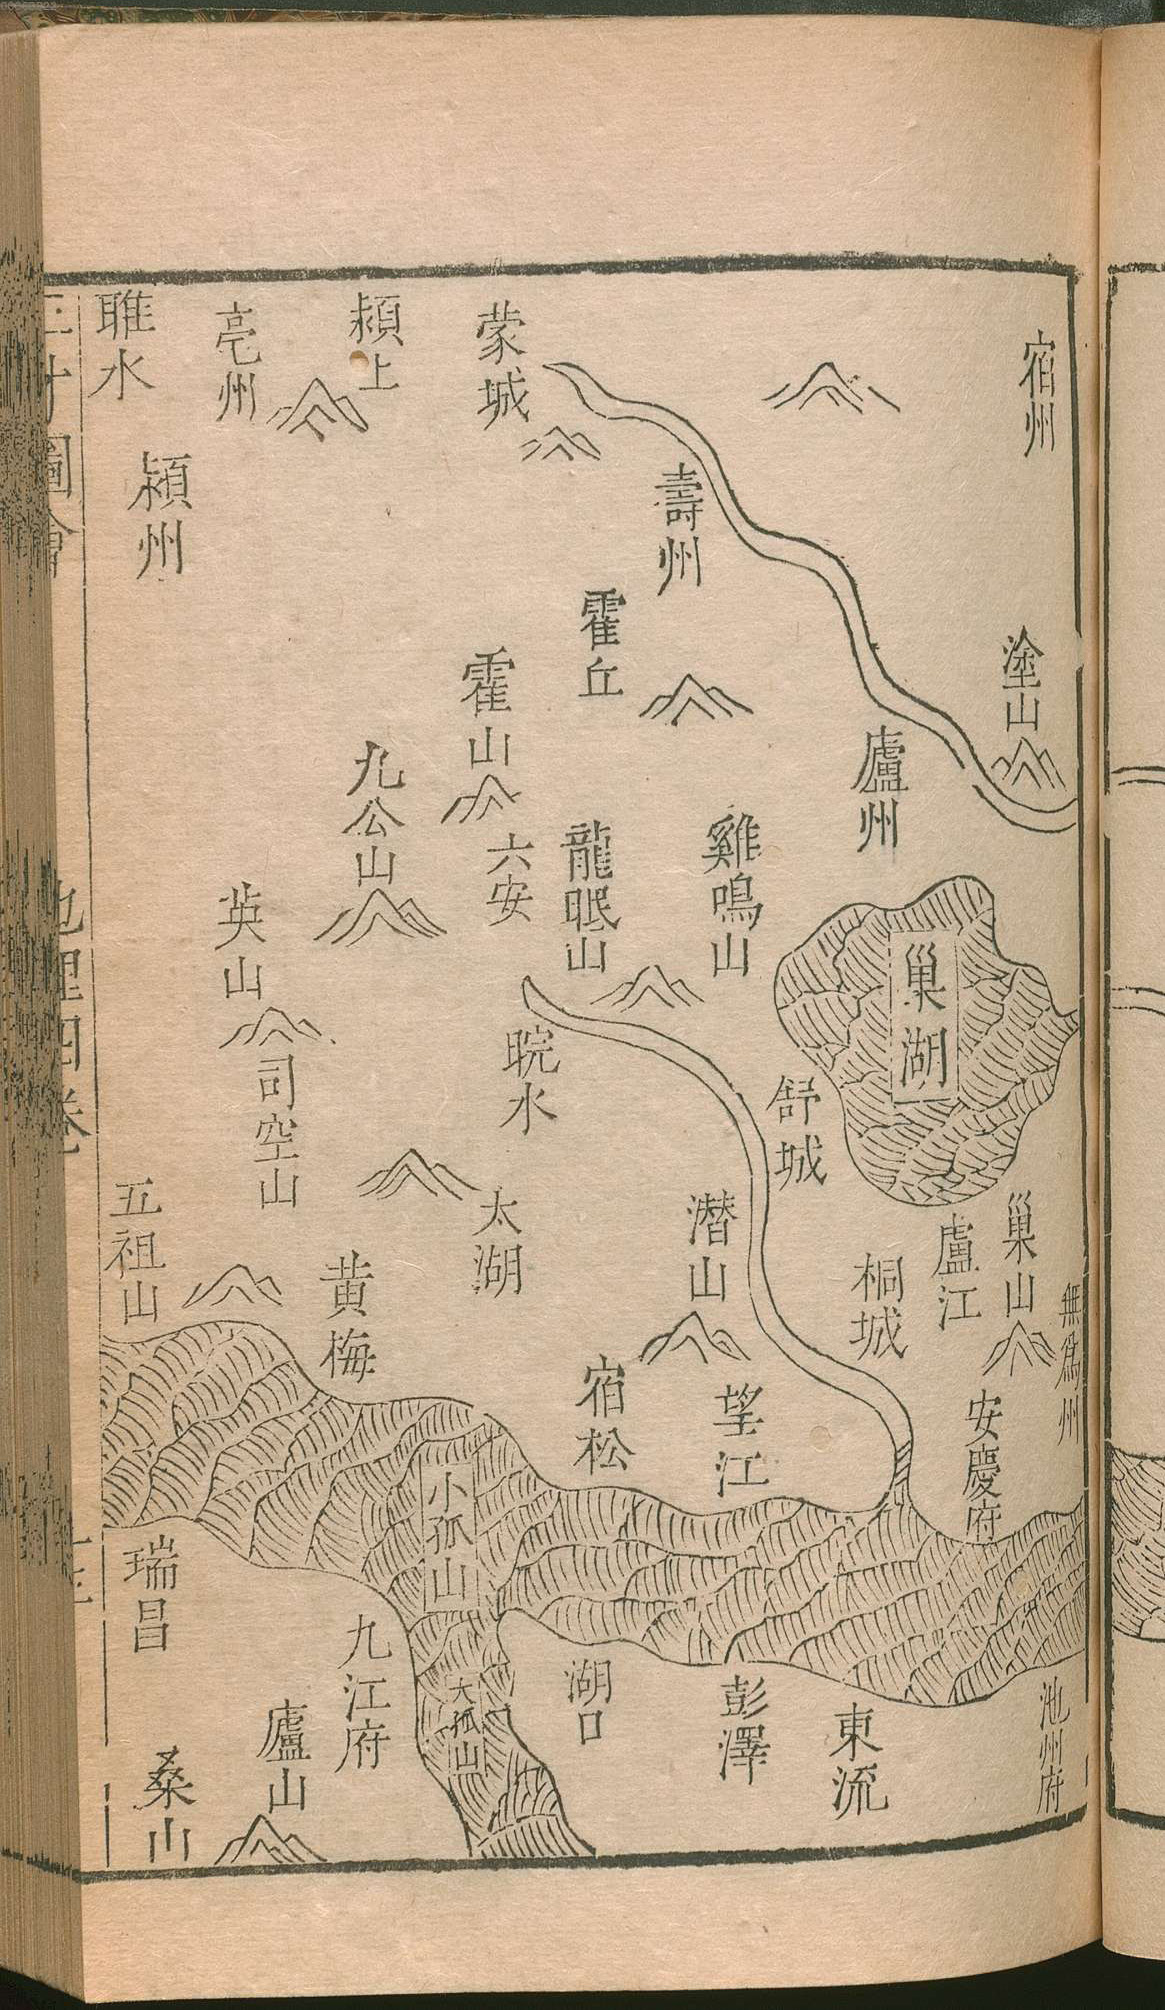 宿州
塗山
巢山
無爲州
池州府
巢湖
盧江
安慶府
廬州
桐城
東流
舒城
雞鳴山
潛山
望江
彭澤
壽州
霍丘
龍眠山
宿松
湖口
蒙城
霍山
六安
晥水
太湖
小孤山
大孤山
潁上
九公山
黄梅
九江府
亳州
英山
司空山
廬山
睢水
潁州
五祖山
瑞昌
桑山
三才圖會
地理四卷